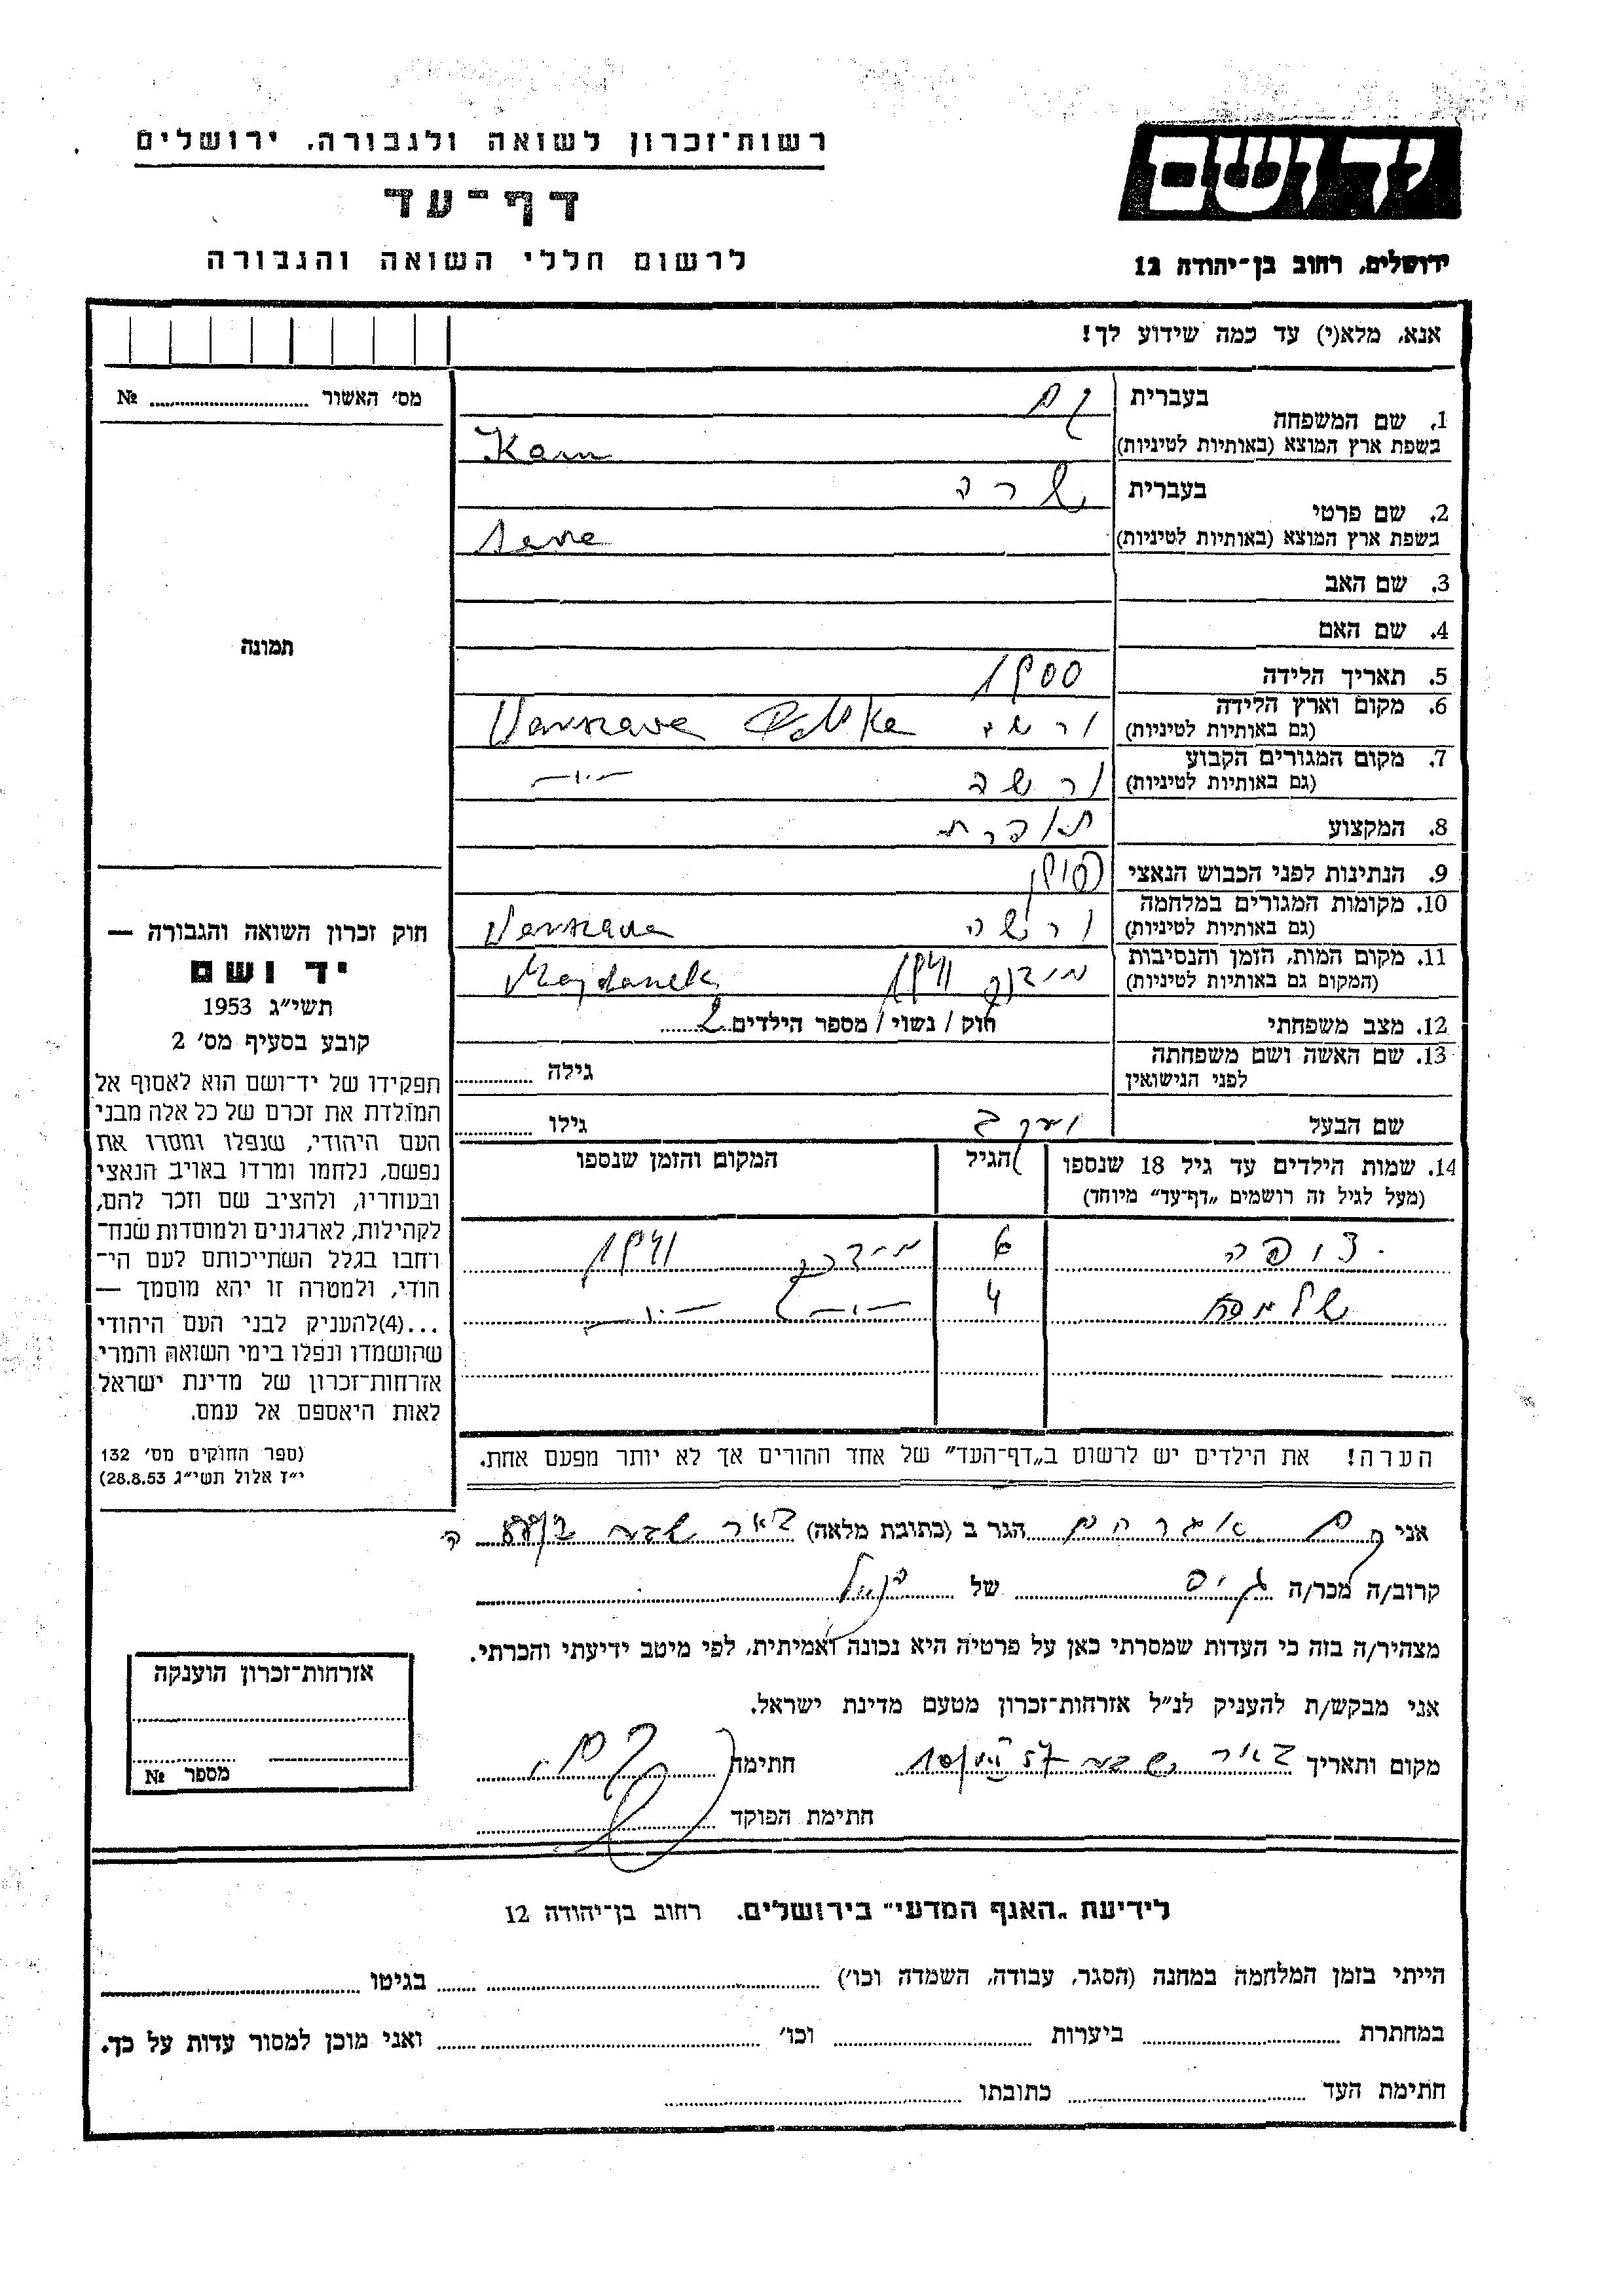 רשות־זכרון לשואה ולגבורה, ירושלים
דף־עד
לרשום חללי השואה והגבורה
יד ושם
ירושלים, רחוב בן־יהודה 12
אנא, מלא(י) עד כמה שידוע לך!
מס׳ האשור № ........
תמונה
חוק זכרון השואה והגבורה —
יד ושם
תשי״ג 1953
קובע בסעיף מס׳ 2
תפקידו של יד־ושם הוא לאסוף אל
המולדת את זכרם של כל אלה מבני
העם היהודי, שנפלו ומסרו את
נפשם, נלחמו ומרדו באויב הנאצי
ובעוזריו, ולהציב שם וזכר להם,
לקהילות, לארגונים ולמוסדות שנח־
רחבו בגלל השתייכותם לעם הי־
הודי, ולמטרה זו יהא מוסמך —
...(4)להעניק לבני העם היהודי
שהושמדו ונפלו בימי השואה והמרי
אזרחות־זכרון של מדינת ישראל
לאות היאספם אל עמם.
(ספר החוקים מס׳ 132
י״ז אלול תשי״ג 28.8.53)
1. שם המשפחה בעברית קם
בשפת ארץ המוצא (באותיות לטיניות) Kam
2. שם פרטי בעברית שרה
בשפת ארץ המוצא (באותיות לטיניות)
3. שם האב
4. שם האם
5. תאריך הלידה 1900
6. מקום וארץ הלידה ורשה Warszawa Polska
(גם באותיות לטיניות)
7. מקום המגורים הקבוע ורשה —״—
(גם באותיות לטיניות)
8. המקצוע תופרת
9. הנתינות לפני הכבוש הנאצי פולין
10. מקומות המגורים במלחמה ורשה Warszawa
(גם באותיות לטיניות)
11. מקום המות, הזמן והנסיבות מידנק 1941 Majdanek
(המקום גם באותיות לטיניות)
12. מצב משפחתי רוק / נשוי / מספר הילדים 2
13. שם האשה ושם משפחתה
לפני הנישואין גילה ........
שם הבעל יעקב גילו ........
14. שמות הילדים עד גיל 18 שנספו הגיל המקום והזמן שנספו
(מעל לגיל זה רושמים „דף־עד״ מיוחד)
צופה 6 מידנק 1941
שלמה 4 —״— —״—
הערה! את הילדים יש לרשום ב„דף־העד״ של אחד ההורים אך לא יותר מפעם אחת.
אני קם אברהם הגר ב (כתובת מלאה) באר שבע
קרוב/ה מכר/ה גיס של הנ״ל
מצהיר/ה בזה כי העדות שמסרתי כאן על פרטיה היא נכונה ואמיתית, לפי מיטב ידיעתי והכרתי.
אני מבקש/ת להעניק לנ״ל אזרחות־זכרון מטעם מדינת ישראל.
מקום ותאריך באר שבע 10/VII 57 חתימה קם
חתימת הפוקד ........
אזרחות־זכרון הוענקה
מספר №
לידיעת „האגף המדעי״ בירושלים, רחוב בן־יהודה 12
הייתי בזמן המלחמה במחנה (הסגר, עבודה, השמדה וכו׳) ........ בגיטו ........
במחתרת ........ ביערות ........ וכו׳ ........ ואני מוכן למסור עדות על כך.
חתימת העד ........ כתובתו ........